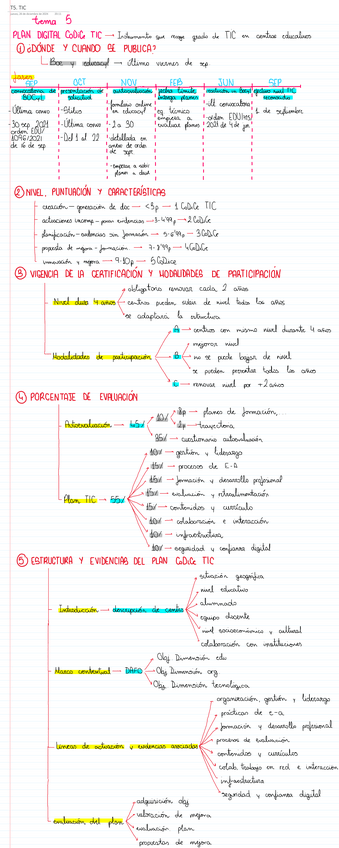 T5. TIC
tema 5
PLAN DIGITAL CoDiCe TIC → Instrumento que recoge grado de TIC en centros educativos
① ¿DÓNDE Y CUANDO SE PUBLICA?
Bocyl y educacyl → último viernes de sep
fases
SEP OCT NOV FEB JUN SEP
convocatoria de BOCyL
- Última convo
- 30 sep 2021
orden EDU/
1096/2021
de 16 de sep
presentación de solicitud
- Stilus
- Última convo
- Del 1 al 22
autoevaluación
- formulario online
en educacyl
- 2 a 30
- detallada en
orden de
sept.
- empezar a subir
planes a cloud
fecha límite entrega planes
- eq. técnico
empieza a
evaluar planes
resolución en Bocyl
- ult convocatoria
- orden EDU/
2021 de 4 de jun
nivel TIC reconocido
1 de septiembre
② NIVEL, PUNTUACIÓN Y CARACTERÍSTICAS
creación - generación de doc → <3p → 1 CoDiCe TIC
3-4'99p → 2 CoDiCe
planificación - evidencias sin formación → 5-6'99p → 3 CoDiCe
propuesta de mejora - formación → 7-8'99p → 4 CoDiCe
innovación y mejora → 9-10p → 5 CoDiCe
③ VIGENCIA DE LA CERTIFICACIÓN Y MODALIDADES DE PARTICIPACIÓN
Nivel dura 4 años
obligatorio renovar cada 2 años
centros pueden subir de nivel todos los años
se adaptará la estructura
Modalidades de participación
A → centros con mismo nivel durante 4 años
B
mejorar nivel
no se puede bajar de nivel
se pueden presentar todos los años
C → renovar nivel por +2 años
④ PORCENTAJE DE EVALUACIÓN
Autoevaluación → 45%
10%
→ planes de formación,...
→ trayectoria
35% → cuestionario autoevaluación
Plan TIC → 55%
→ gestión y liderazgo
→ procesos de E-A
→ formación y desarrollo profesional
→ evaluación y retroalimentación
→ contenidos y currículo
→ colaboración e interacción
→ infraestructura
→ seguridad y confianza digital
⑤ ESTRUCTURA Y EVIDENCIAS DEL PLAN CoDiCe TIC
Introducción → descripción de centro
situación geográfica
nivel educativo
alumnado
equipo docente
nivel socioeconómico y cultural
colaboración con instituciones
Marco contextual → DAFO
Obj Dimensión edu
Obj Dimensión org
Obj Dimensión tecnológica
Líneas de actuación y evidencias asociadas
organización, gestión y liderazgo
prácticas de e-a
formación y desarrollo profesional
procesos de evaluación
contenidos y currículos
colab, trabajo en red e interacción
infraestructura
seguridad y confianza digital
evaluación del plan
adquisición obj
valoración de mejora
evaluación plan
propuestas de mejora